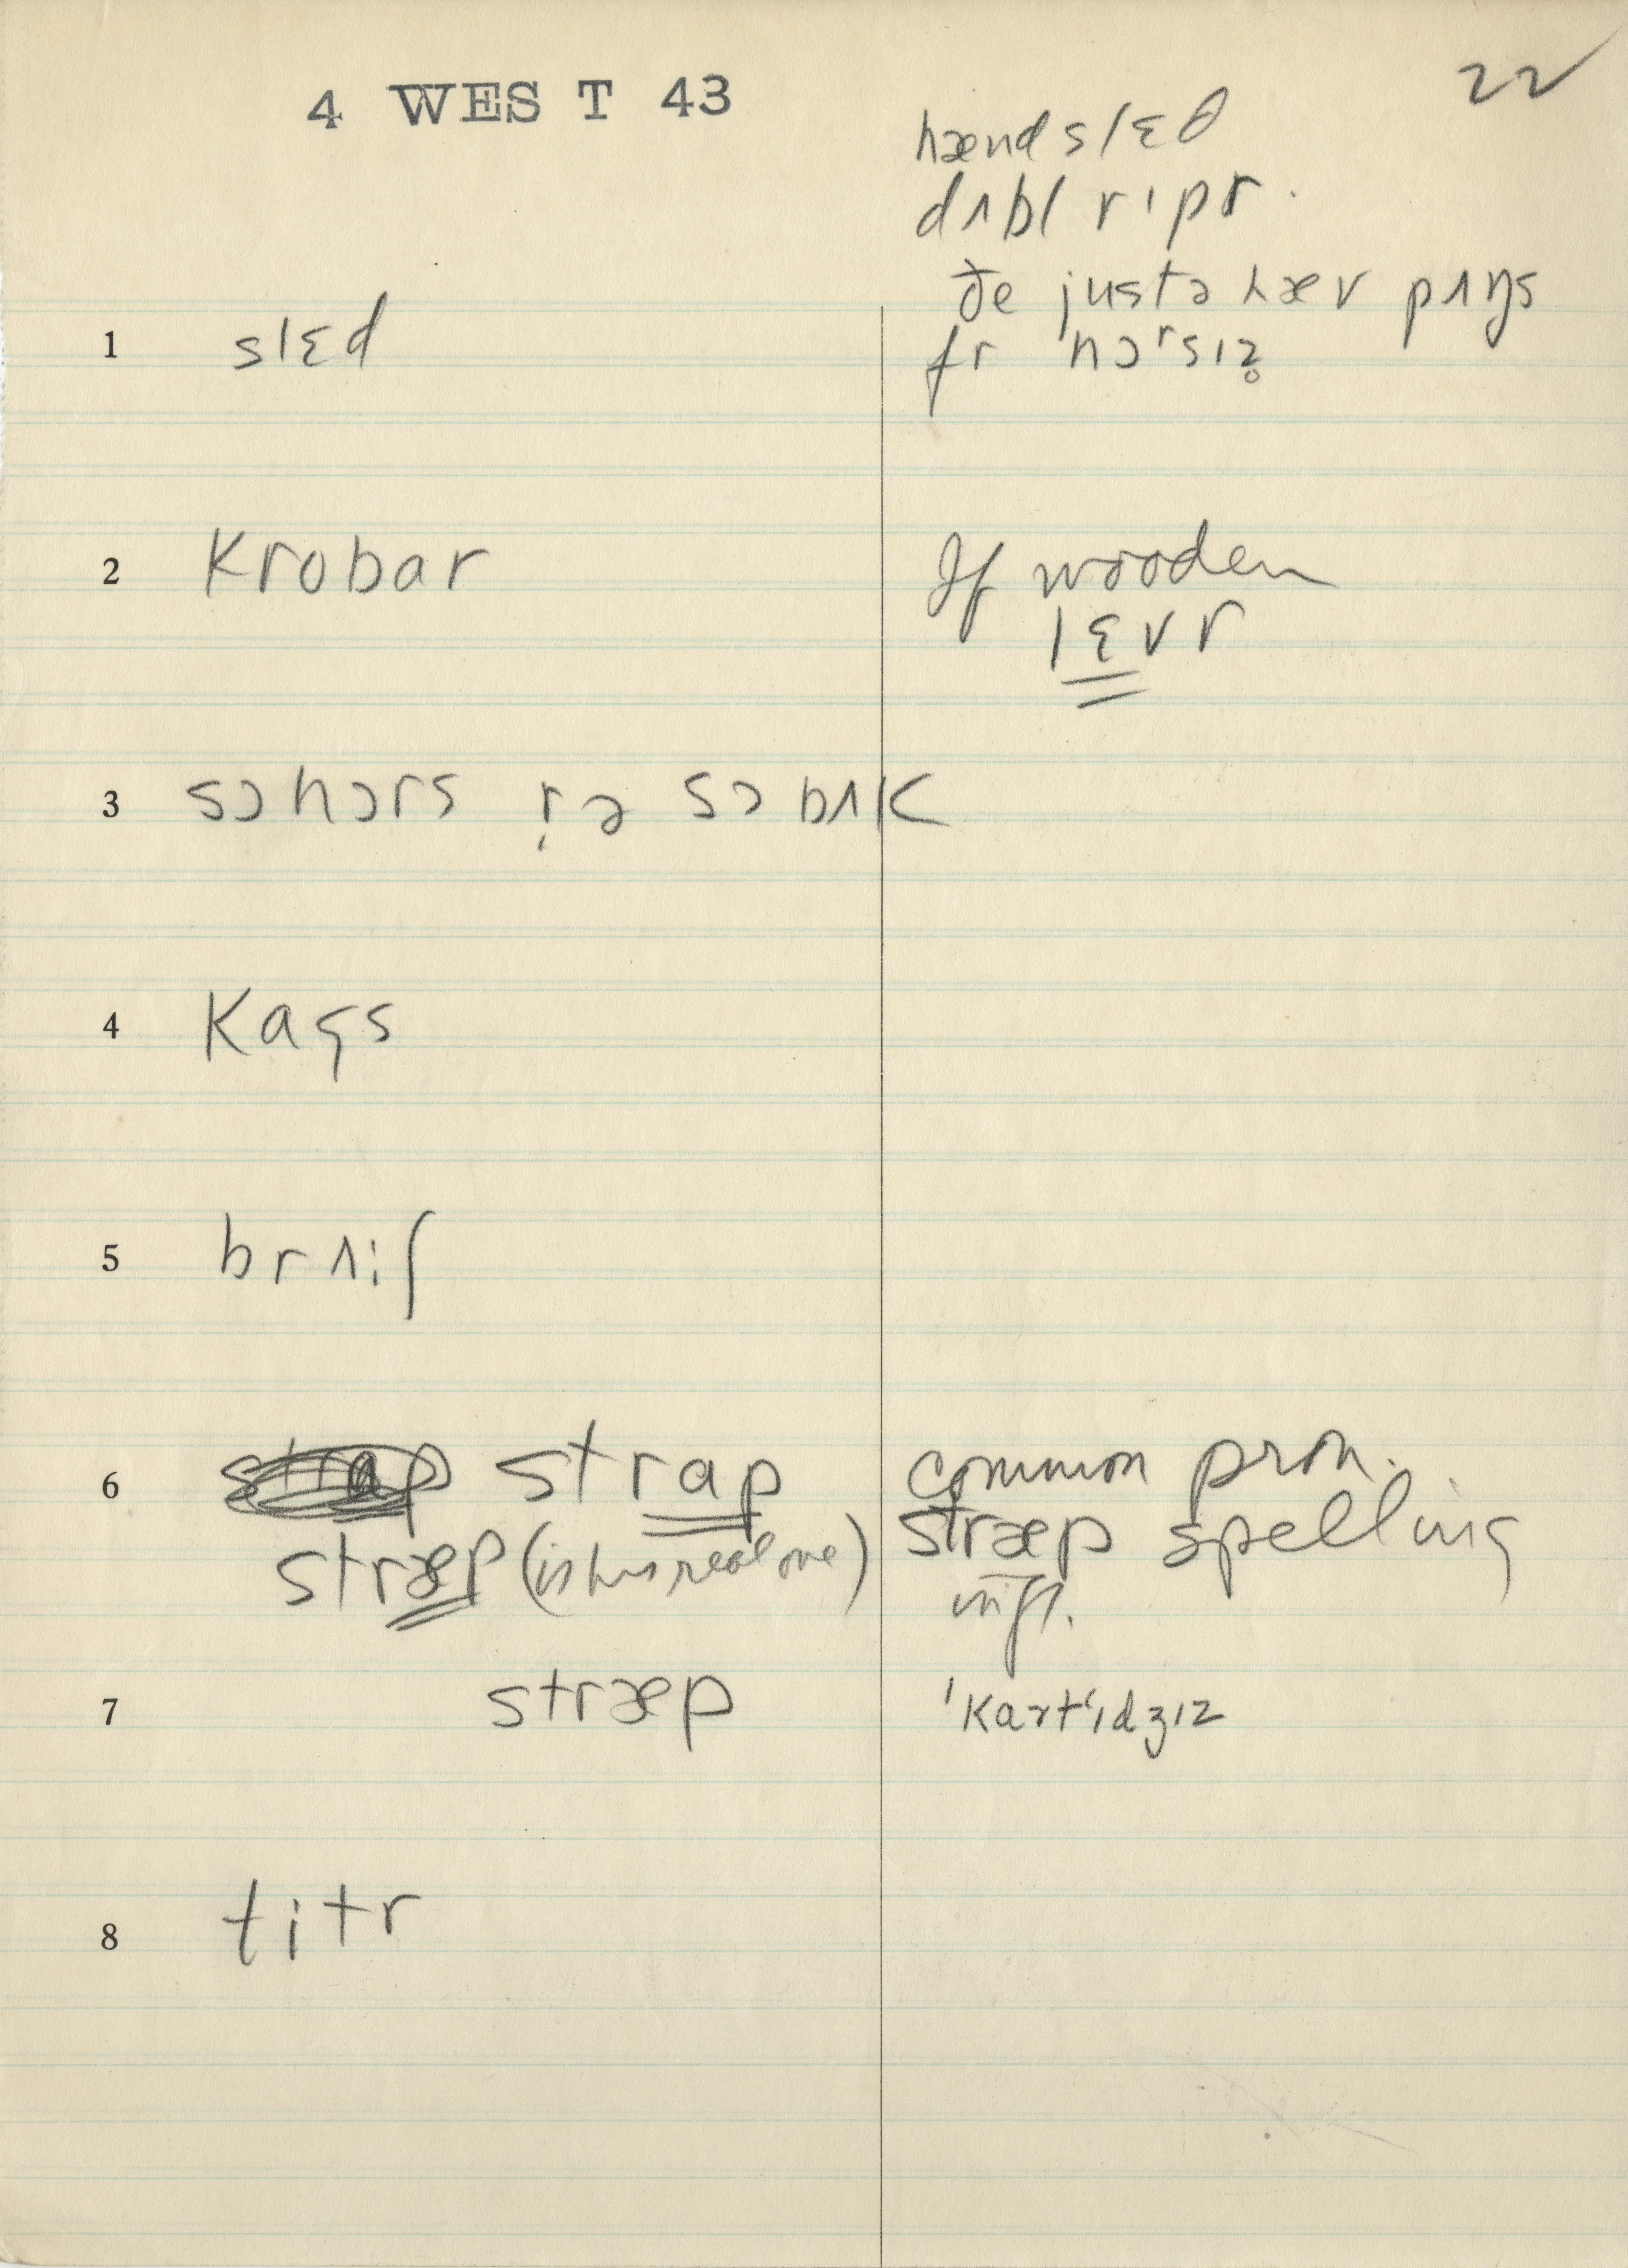 4 WEST 43
22
hænd slɛd
dʌbl ripr.
ðe justə hæv pʌŋs
fr 'hɔrsɪz̥
1 slɛd
2 Krobar
If wooden
lɛvr
3 sɔhɔrs
sɔ bʌk
4 Kags
5 brʌiʃ
6 strap strap
common pron.
stræp (is his real one)
stræp spelling
infl.
7 stræp
'Kartʻɪdʒɪz
8 titr